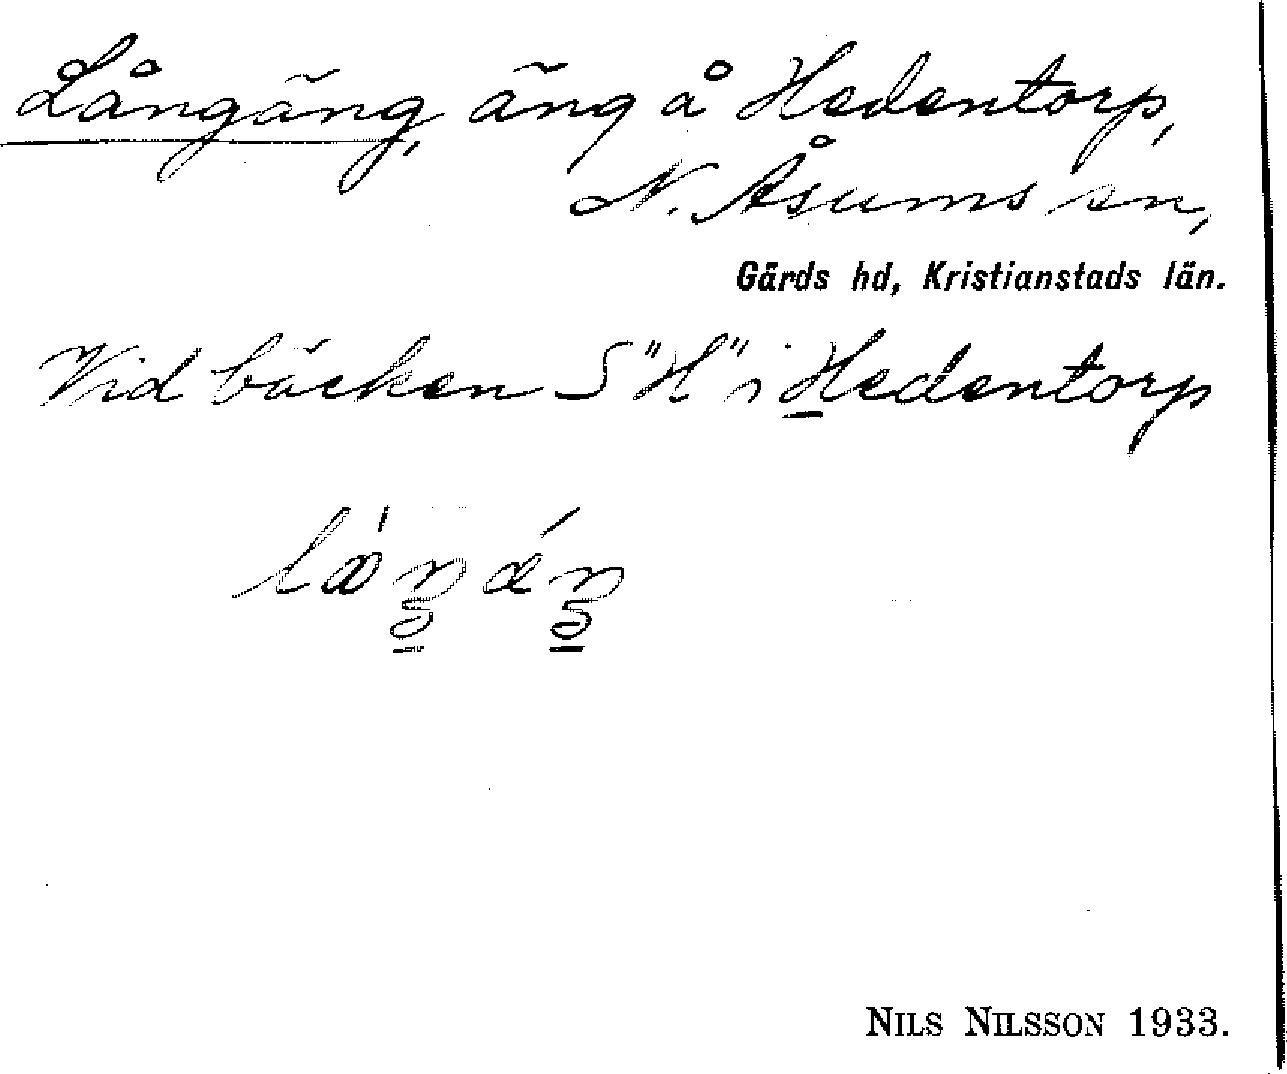 Långäng, äng å Hedentorp,
N. Åsums sn,
Gärds hd, Kristianstads län.
Vid bäcken S "H" i Hedentorp
NILS NILSSON 1933.